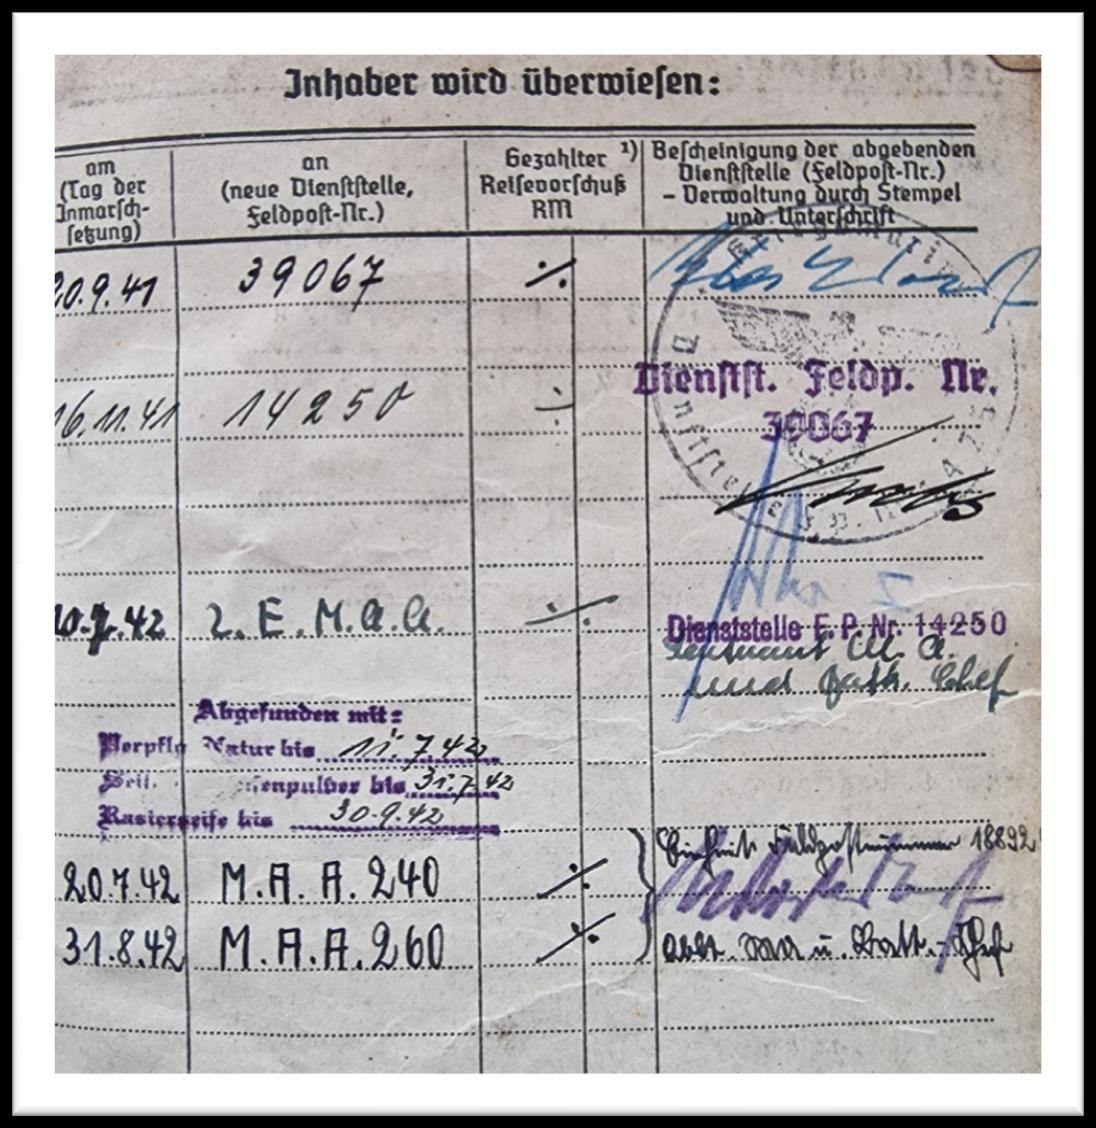 Inhaber wird überwiesen:
am
(Tag der
Inmarsch-
setzung)
an
(neue Dienststelle,
Feldpost-Nr.)
Gezahlter ¹)
Reisevorschuß
RM
Bescheinigung der abgebenden
Dienststelle (Feldpost-Nr.)
- Verwaltung durch Stempel
und Unterschrift
20.9.41 39067 ·/.
Kriegsmarine
Dienstst. Feldp. Nr.
16.11.41 14250 ·/.
39067
Dienststelle
10.7.42 2. E. M.a.a. ·/.
Dienststelle F. P. Nr. 14250
Leutnant M. A.
und Battr. Chef
Abgefunden mit:
Verpflg Natur bis 11.7.42
bis 31.7.42
Rasierseife bis 30.9.42
Einheit Feldpostnummer 18892
20.7.42 M.A.A. 240 ·/.
31.8.42 M.A.A. 260 ·/.
u. Batt.-Chef